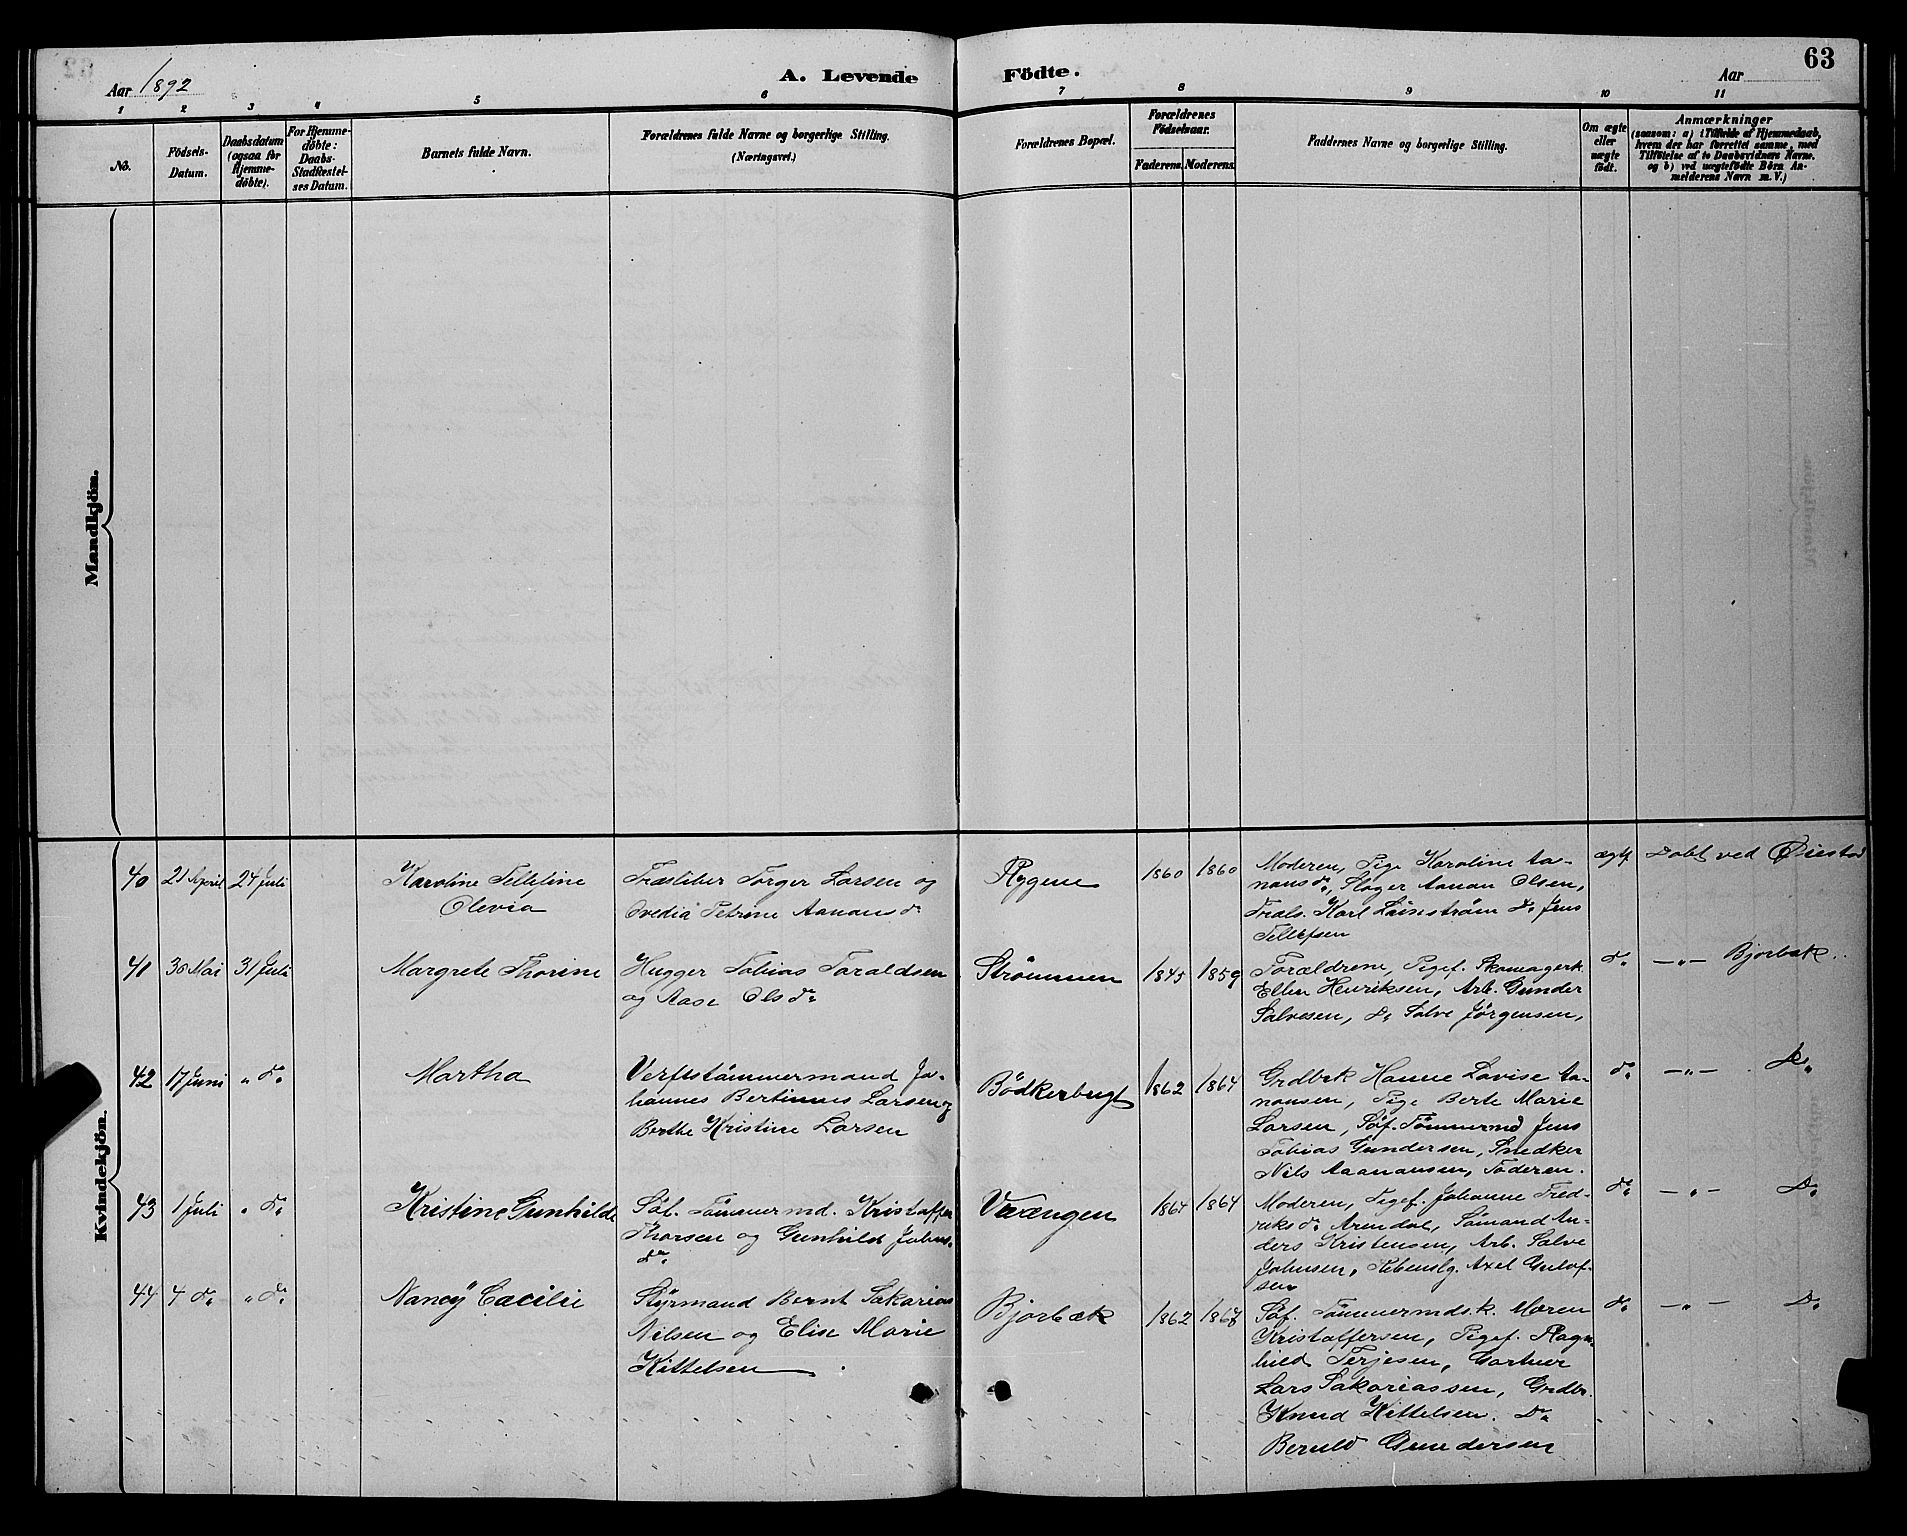 63
Aar 1892
A. Levende
Födte.
Aar
1 2 3 4 5 6 7 8 9 10 11
No.
Födsels-
Datum.
Daabsdatum
(ogsaa for
Hjemme-
döbte).
For Hjemme-
döbte:
Daabs-
Stadfæstel-
ses Datum.
Barnets fulde Navn.
Forældrenes fulde Navne og borgerlige Stilling.
(Næringsvei.)
Forældrenes Bopæl.
Forældrenes
Födselsaar.
Faderens. Moderens.
Faddernes Navne og borgerlige Stilling.
Om ægte
eller
uægte
födt.
Anmærkninger
(saasom: a) i Tilfælde af Hjemmedaab,
hvem der har forrettet samme, med
Tilföielse af to Daabsvidners Navne.
og b) ved uægtefödte Börn An-
melderens Navn m. V.)
Mandkjön.
Kvindekjön.
40
21 April
24 Juli
Karoline Tellefine
Olevia
Træsliber Torger Larsen og
Ovedia Petrine Aanans dr.
Rygene
1860
1860
Moderen, Pige Karoline Aa-
nans dr., Slager Aanan Olsen,
Træls. Karl Lönström Do Jens
Tellefsen
ægte
Døbt ved Øiestad
41
30 Mai
31 Juli
Margrete Thorine
Hugger Tobias Taraldsen
og Aase Ols dr.
Strømmen
1845
1859
Forældrene, Pigef. Skomagerk.
Ellen Henriksen, Arb. Gunder
Salvesen, Do Salve Jörgensen,
do
— „ — Bjorbæk
42
17 Juni
„ do
Martha
Verftstömmermand Jo-
hannes Bertinius Larsen og
Berthe Kristine Larsen
Bödkerbugt
1862
1864
Grdbrk Hanne Lovise Aa-
nonsen, Pige Berte Marie
Larsen, Söf. Tömmermd Jens
Tobias Gundersen, Snedker
Nils Aaanansen, Faderen.
do
— „ — Do
43
1 Juli
„ do
Kristine Gunhilde
Söf. Tömmermd. Kristoffer
Thorsen og Gunhild Johns-
dr.
Vrængen
1864
1864
Moderen, Pigef. Johanne Fred-
riks dr Arendal, Sömand An-
ders Kristensen, Arb. Salve
Johnsen, Axel Gulof-
sen
do
— „ — Do
44
4 do
„ do
Nancy Cæcilie
Styrmand Bernt Sakarias
Nilsen og Elise Marie
Kittelsen
Bjorbæk
1862
1867
Söf. Tömmermds.k. Maren
Kristoffersen, Pigef. Ragn-
hild Terjesen, Gartner
Lars Sakariassen, Grdbr.
Knud Kittelsen. Do
Beruld Gundersen
do
— „ — Do